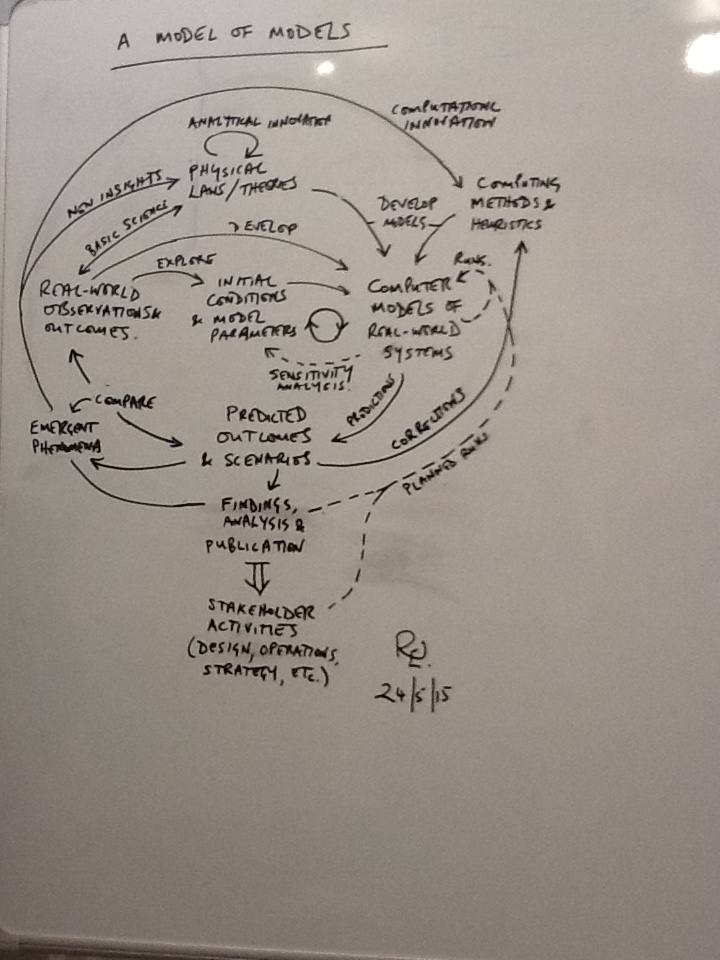 A MODEL OF MODELS
COMPUTATIONAL
INNOVATION
ANALYTICAL INNOVATION
PHYSICAL
LAWS/THEORIES
NEW INSIGHTS
BASIC SCIENCE
COMPUTING
METHODS &
HEURISTICS
DEVELOP
MODELS
DEVELOP
EXPLORE
RUNS.
REAL-WORLD
OBSERVATIONS &
OUTCOMES.
INITIAL
CONDITIONS
& MODEL
PARAMETERS
COMPUTER
MODELS OF
REAL-WORLD
SYSTEMS
SENSITIVITY
ANALYSIS.
COMPARE
EMERGENT
PHENOMENA
PREDICTED
OUTCOMES
& SCENARIOS
PREDICTIONS
CORRECTIONS
PLANNED RUNS
FINDINGS,
ANALYSIS &
PUBLICATION
STAKEHOLDER
ACTIVITIES
(DESIGN, OPERATIONS,
STRATEGY, ETC.)
24/5/15